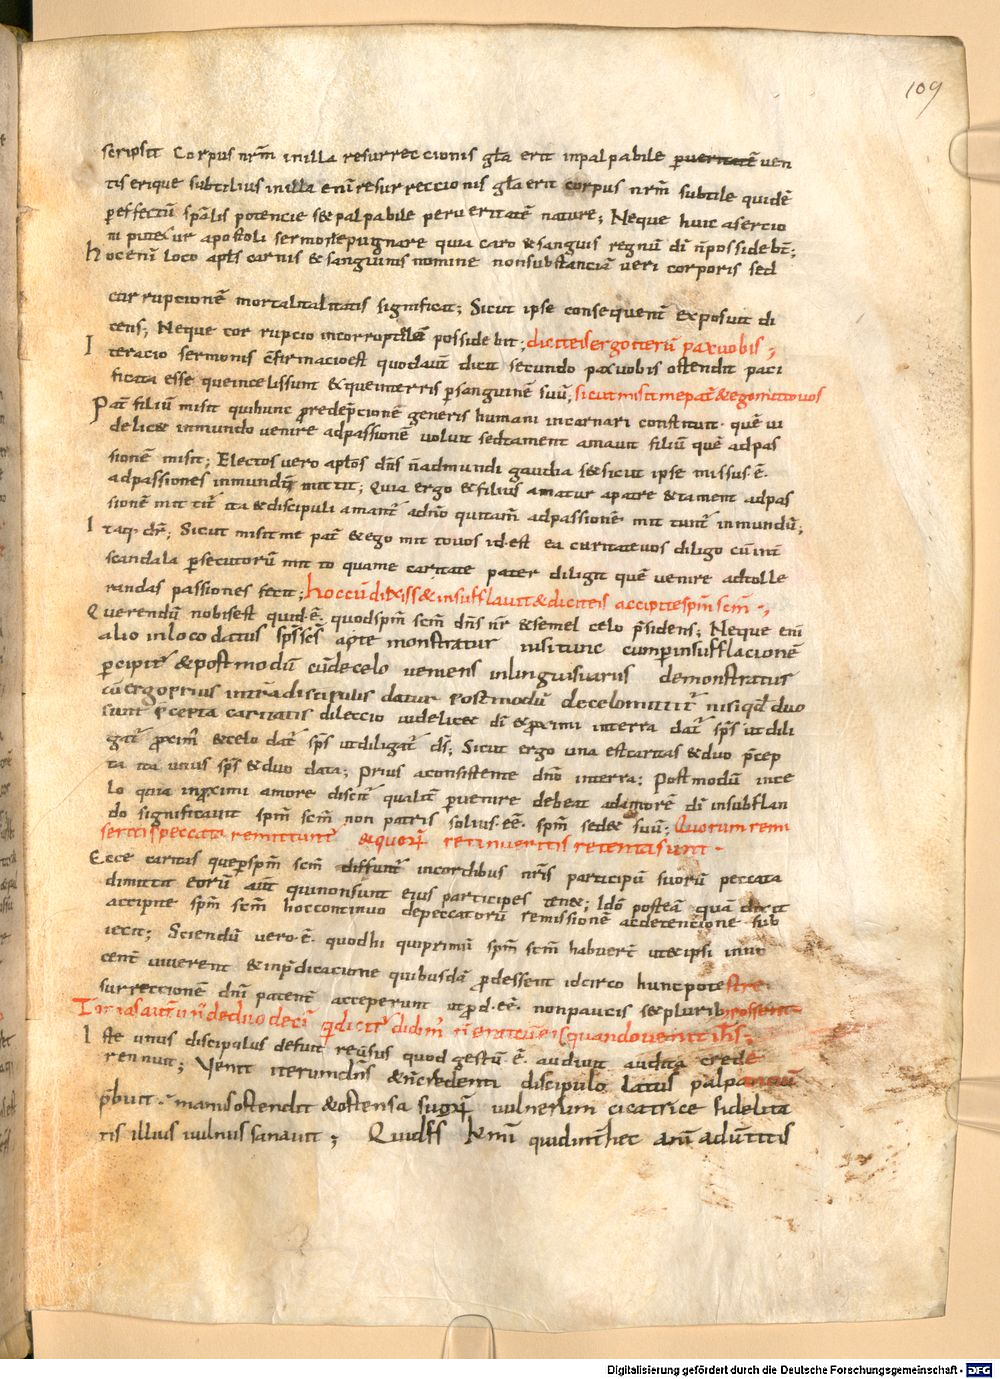 109
scripsit Corpus nrm̄ inilla resurreccionis gl̄a erit inpalpabile p̱ueritatē ven
tiserique subtilius inilla enī resurreccionis gl̄a erit corpus nrm̄ subtile quidē
p̱effectū sp̄alis potencie s&palpabile perueritatē nature; Neque huic asercio
ni putet̄ur apostoli sermo repugnare quia caro &sanguis regnū dī n̄possidebt̄;
hocenī loco apl̄s carnis &sanguinis nomine nonsubstanciā ueri corporis sed
corrupcionē mortalitalitatis significat; Sicut ipse consequent̄ exposuit di
cens; Neque corrupcio incorruptelā possidebit; dicit eis ergo iterū pax uobis;
Iteracio sermonis c̄firmacio est quodaut̄ dicit secundo pax uobis ostendit paci
ficata esse que incelis sunt &que interris p̱sanguinē suū; sicut misit me pat̄ &ego mitto uos
Pat̄ filiū misit qui hunc p̱redēpcionē generis humani incarnari constituit· quē ui
delic& inmundo uenire adpassionē voluit sed tament amauit filiū quē adpas
sionē misit; Electos uero apl̄os dn̄s n̄admundi gaudia s&sicut ipse missus·ē·
adpassiones inmundū mittit; Quia ergo &filius amatur apatre &tament adpas
sionē mittit̄ ita &discipuli amant̄ adn̄o quitam̄ adpassionē mittunt̄ inmundū;
Itaq· dr̄; Sicut misit me pat̄ &ego mitto uos id·est ea caritate uos diligo cū int̄
scandala p̱secutorū mitto quame caritate pater diligit quē uenire adtolle
randas passiones fecit; hoc cū dixiss& insufflauit & dicit eis accipite sp̄m scm̄·,
Querendū nobis est quid·ē· quod sp̄m scm̄ dn̄s nr̄ &semel celo p̄sidens; Neque enī
alio inloco datus sp̄s sc̄s aꝑte monstratur nisi tunc cum p̱insufflacionē
p̱cipit̄ &postmodū cū decelo ueniens inlinguis uariis demonstratur
cū ergo prius int̄ra discipulis datur postmodū decelo mittit̄ nisi qd̄ duo
sunt p̄cepta caritatis dileccio uidelicet dī &proximi interra dat̄ sp̄s ut dili
gat̄ p̱xim̄ &celo dat̄ sp̄s ut diligat̄ ds̄; Sicut ergo una est caritas &duo p̄cep
ta ita unus sp̄s &duo data; Prius aconsistente dn̄o interra: Postmodū ince
lo quia inp̱ximi amore discit̄ qualit̄ p̱uenire debeat adamorē dī insufflan
do significauit sp̄m scm̄ non patris solius·ēē· sp̄m sed& suū; Quorum remi
seritis peccata remittunt̄ &quorū retinueritis retenta sunt·
Ecce caritas que p̱sp̄m scm̄ diffunt̄ incordibus nr̄is participū suorū peccata
dimittit eorū aut̄ qui non sunt eius participes ten&; Idō posteā quā dixit
accipite sp̄m scm̄ hoc continuo depeccatorū remissionē acdetencione sub
iecit; Sciendū uero·ē· quod hi qui primū sp̄m scm̄ habuer̄t
cent̄ uiuerent &inp̄dicacione quibusdā p̱dessent idcirco hunc
surreccionē dn̄i patent̄ acceperunt ut p̱d·ēē· non paucis s&pluribus
Tomas aut̄ un̄ deduodecī qi̱ dicit̄ didim̄ n̄ erat cū eis quando uenit ih̄s;
Iste unus discipulus defuit reūsus quod gestū·ē· audiuit audita crede
rennuit; Venit iterum dn̄s &n̄credenti discipulo latus palpandū
p̄buit· manus ostendit &ostensa suorū uulnerum cicatrice fidelita
tis illius uulnus sanauit;
Digitalisierung gefördert durch die Deutsche Forschungsgemeinschaft - DFG